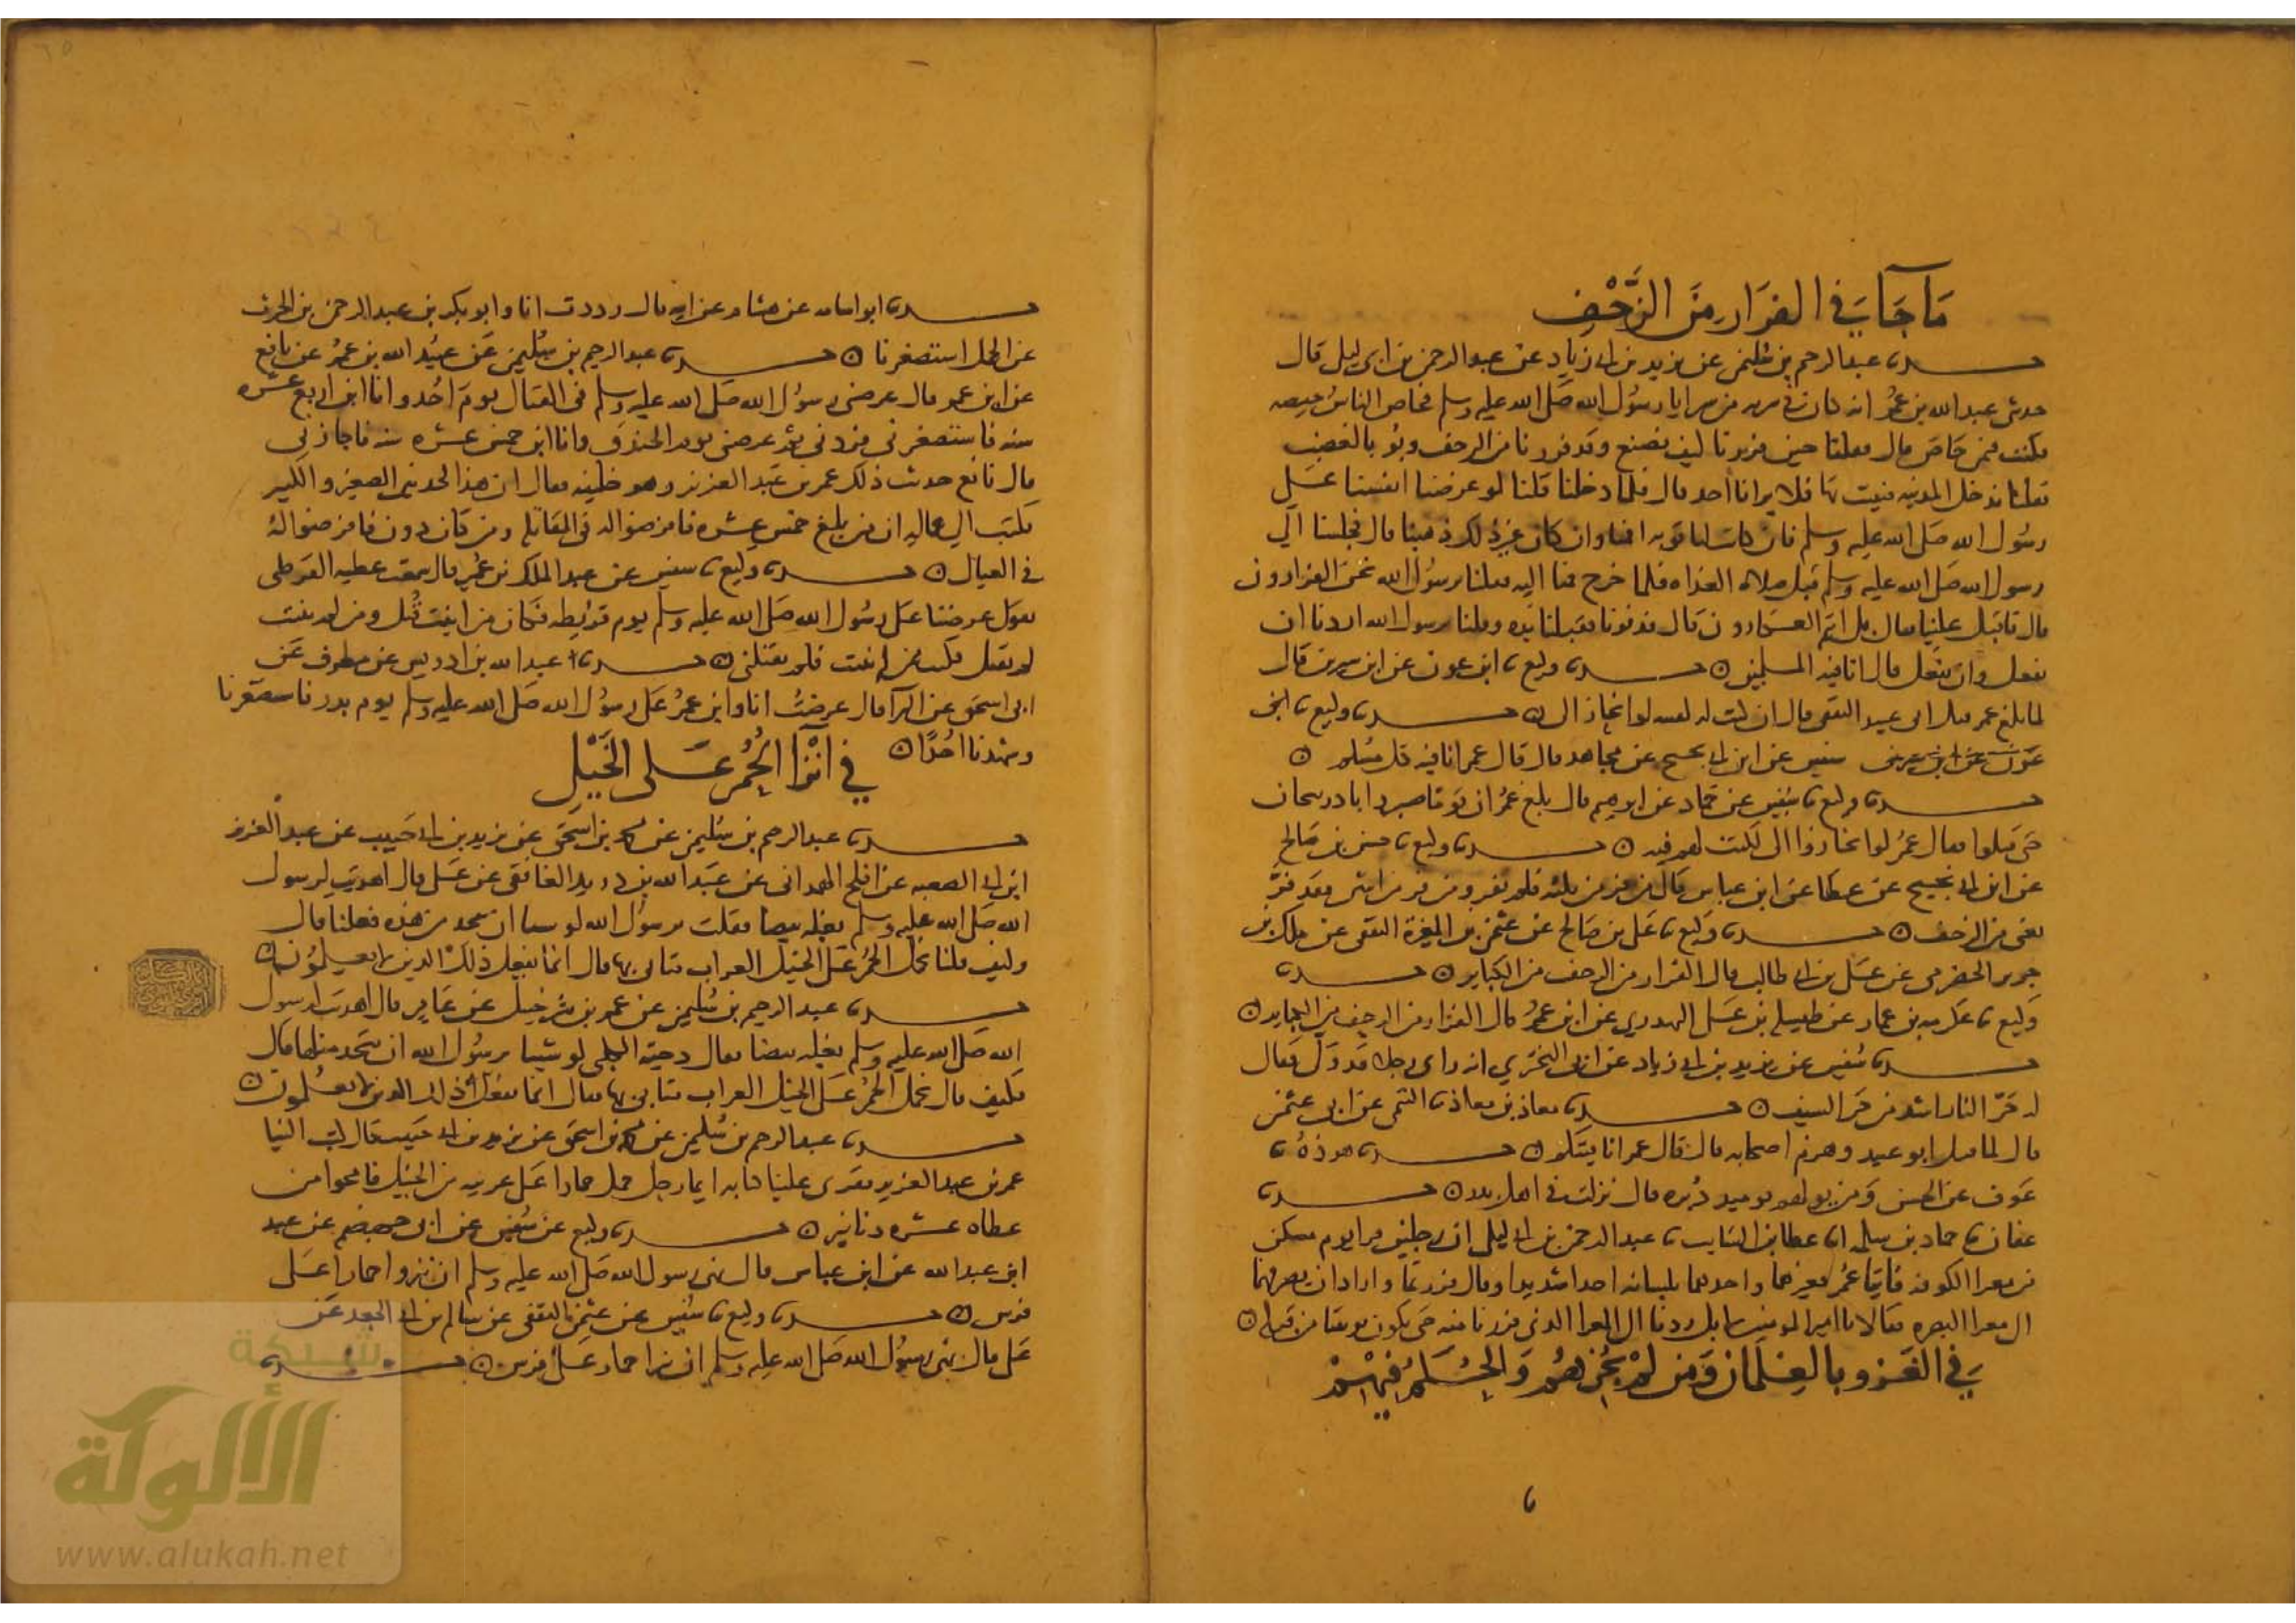 ما جاء في الفرار من الزحف
حدثنا عبد الرحيم بن سليمن عن يزيد بن ابي زياد عن عبد الرحمن بن ابي ليلى قال
حدثني عبد الله بن عمر انه كان في سريه من سرايا رسول الله صلى الله عليه وسلم فحاص الناس حيصه
فكنت فيمن حاص قال فقلنا حين فررنا كيف نصنع وقد فررنا من الزحف وبؤنا بالغضب
فقلنا ندخل المدينه فنبيت بها فلا يرانا احد قال فلما دخلنا قلنا لو عرضنا انفسنا على
رسول الله صلى الله عليه وسلم فان كانت لنا توبه اقمنا وان كان غير ذلك ذهبنا قال فجلسنا الى
رسول الله صلى الله عليه وسلم قبل صلاه الغداه فلما خرج قمنا اليه فقلنا يرسول الله نحن الفرارون
قال فاقبل علينا فقال بل انتم العكارون قال فدنونا فقبلنا يده وقلنا يرسول الله اردنا ان
نفعل وان نفعل قال انا فيه المسلمين حدثنا وكيع ثنا ابن عون عن ابن سيرين قال
لما بلغ عمر قتل ابي عبيد الثقفي قال ان كنت له لفئه لو انحاز الي حدثنا وكيع ثنا ابن
سفين عن ابن ابي نجيح عن مجاهد قال قال عمر انا فيه كل مسلم
حدثنا وكيع ثنا سفين عن حماد عن ابرهيم قال بلغ عمر ان قوما صبروا باذربيجان
حتى قتلوا فقال عمر لو انحازوا الي لكنت لهم فيه حدثنا وكيع ثنا حسن بن صالح
عن ابن ابي نجيح عن عطا عن ابن عباس قال من فر من ثلثه فلم يفر ومن فر من اثنين فقد فر
يعني من الزحف حدثنا وكيع ثنا علي بن صالح عن عثمن بن المغيرة الثقفي عن ملك بن
جوير الحضرمي عن علي بن ابي طالب قال الفرار من الزحف من الكباير حدثنا
وكيع ثنا عكرمه بن عمار عن طيسله بن علي النهدي عن ابن عمر قال الفرار من الزحف من الكباير
حدثنا سفين عن يزيد بن ابي زياد عن ابي البختري انه راى رجلا قد ولى فقال
له حر النار اشد من حر السيف حدثنا معاذ بن معاذ ثنا التيمي عن ابي عثمن
قال لما قتل ابو عبيد وهزم اصحابه قال قال عمر انا فيتكم حدثنا هوذه ثنا
عوف عن الحسن ومن يولهم يوميذ دبره قال نزلت في اهل بدر حدثنا
عفان ثنا حماد بن سلمه انا عطا بن السايب ثنا عبد الرحمن بن ابي ليلى ان رجلين فرا يوم مسكن
من مغزا الكوفه فاتيا عمر فعيرهما واخذهما بلسانه اخذا شديدا وقال فررتما واراد ان يصرفهما
الى مغزا البصره فقالا يا امير المومنين لا بل ردنا الى المغزا الذي فررنا منه حتى يكون توبتنا من قبله
في الغزو بالغلمان ومن لم يجزهم والحكم فيهم
حدثنا ابو اسامه عن هشام عن ابيه قال رددت انا وابو بكر بن عبد الرحمن بن الحرث
عن الجمل استصغرنا حدثنا عبد الرحيم بن سليمن عن عبيد الله بن عمر عن نافع
عن ابن عمر قال عرضني رسول الله صلى الله عليه وسلم في القتال يوم احد وانا ابن اربع عشره
سنه فاستصغرني فردني ثم عرضني يوم الخندق وانا ابن خمس عشره سنه فاجازني
قال نافع حدثت ذلك عمر بن عبد العزيز وهو خليفه فقال ان هذا لحد بين الصغير والكبير
فكتب الى عماله ان من بلغ خمس عشره فافرضوا له في المقاتله ومن كان دون فافرضوا له
في العيال حدثنا وكيع ثنا سفين عن عبد الملك بن عمير قال سمعت عطيه القرظي
يقول عرضنا على رسول الله صلى الله عليه وسلم يوم قريظه فكان من انبت قتل ومن لم ينبت
لم يقتل فكنت ممن لم ينبت فلم يقتلني حدثنا عبد الله بن ادريس عن مطرف عن
ابي اسحق عن البرا قال عرضت انا وابن عمر على رسول الله صلى الله عليه وسلم يوم بدر فاستصغرنا
وشهدنا احدا
في انزا الحمر على الخيل
حدثنا عبد الرحيم بن سليمن عن محمد بن اسحق عن يزيد بن ابي حبيب عن عبد العزيز
ابن ابي الصعبه عن افلح الهمداني عن عبد الله بن زرير الغافقي عن علي قال اهديت لرسول
الله صلى الله عليه وسلم بغله بيضا فقلت يرسول الله لو شينا ان نتخذ من هذه فعلنا قال
وكيف قلنا نحمل الحمر على الخيل العراب فتاتي بها قال انما يفعل ذلك الذين لا يعلمون
حدثنا عبد الرحيم بن سليمن عن عمر بن شرحبيل عن عامر قال اهديت لرسول
الله صلى الله عليه وسلم بغله بيضا فقال دحيه الكلبي لو شينا يرسول الله ان نتخذ مثلها قال
فكيف قال نحمل الحمر على الخيل العراب فتاتي بها فقال انما يفعل ذلك الذين لا يعلمون
حدثنا عبد الرحيم بن سليمن عن محمد بن اسحق عن يزيد بن ابي حبيب قال كتب الينا
عمر بن عبد العزيز فقرى علينا كتابه ايما رجل حمل حمارا على عربيه من الخيل فامحوا من
عطاه عشره دنانير حدثنا وكيع عن سفين عن ابي جهضم عن عبيد
ابن عبد الله عن ابن عباس قال نهى رسول الله صلى الله عليه وسلم ان ننزوا حمارا على
فرس حدثنا وكيع ثنا سفين عن عثمن الثقفي عن سالم بن ابي الجعد عن
علي قال نهى رسول الله صلى الله عليه وسلم ان ننزا حمار على فرس حدثنا
شبكة
الألوكة
www.alukah.net